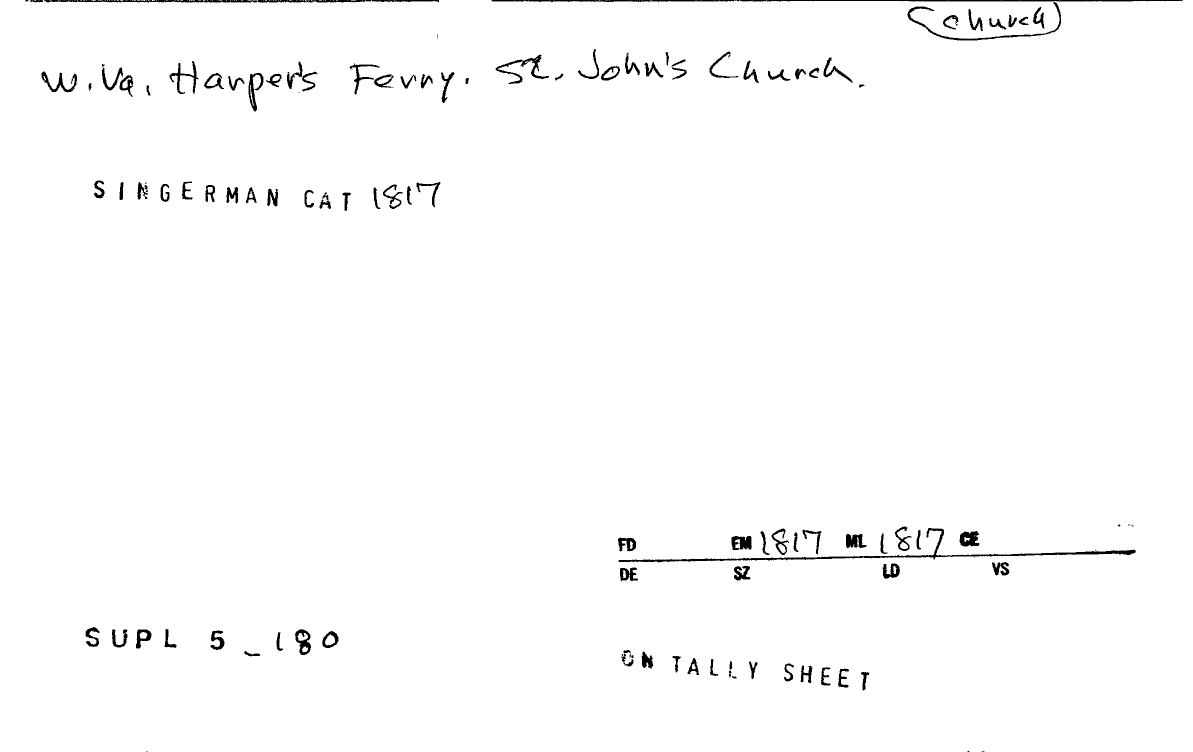 (church)
W. Va. Harper's Ferry. St. John's Church.
SINGERMAN CAT 1817
FD EM 1817 ML 1817 CE
DE SZ LD VS
SUPL 5_180
ON TALLY SHEET